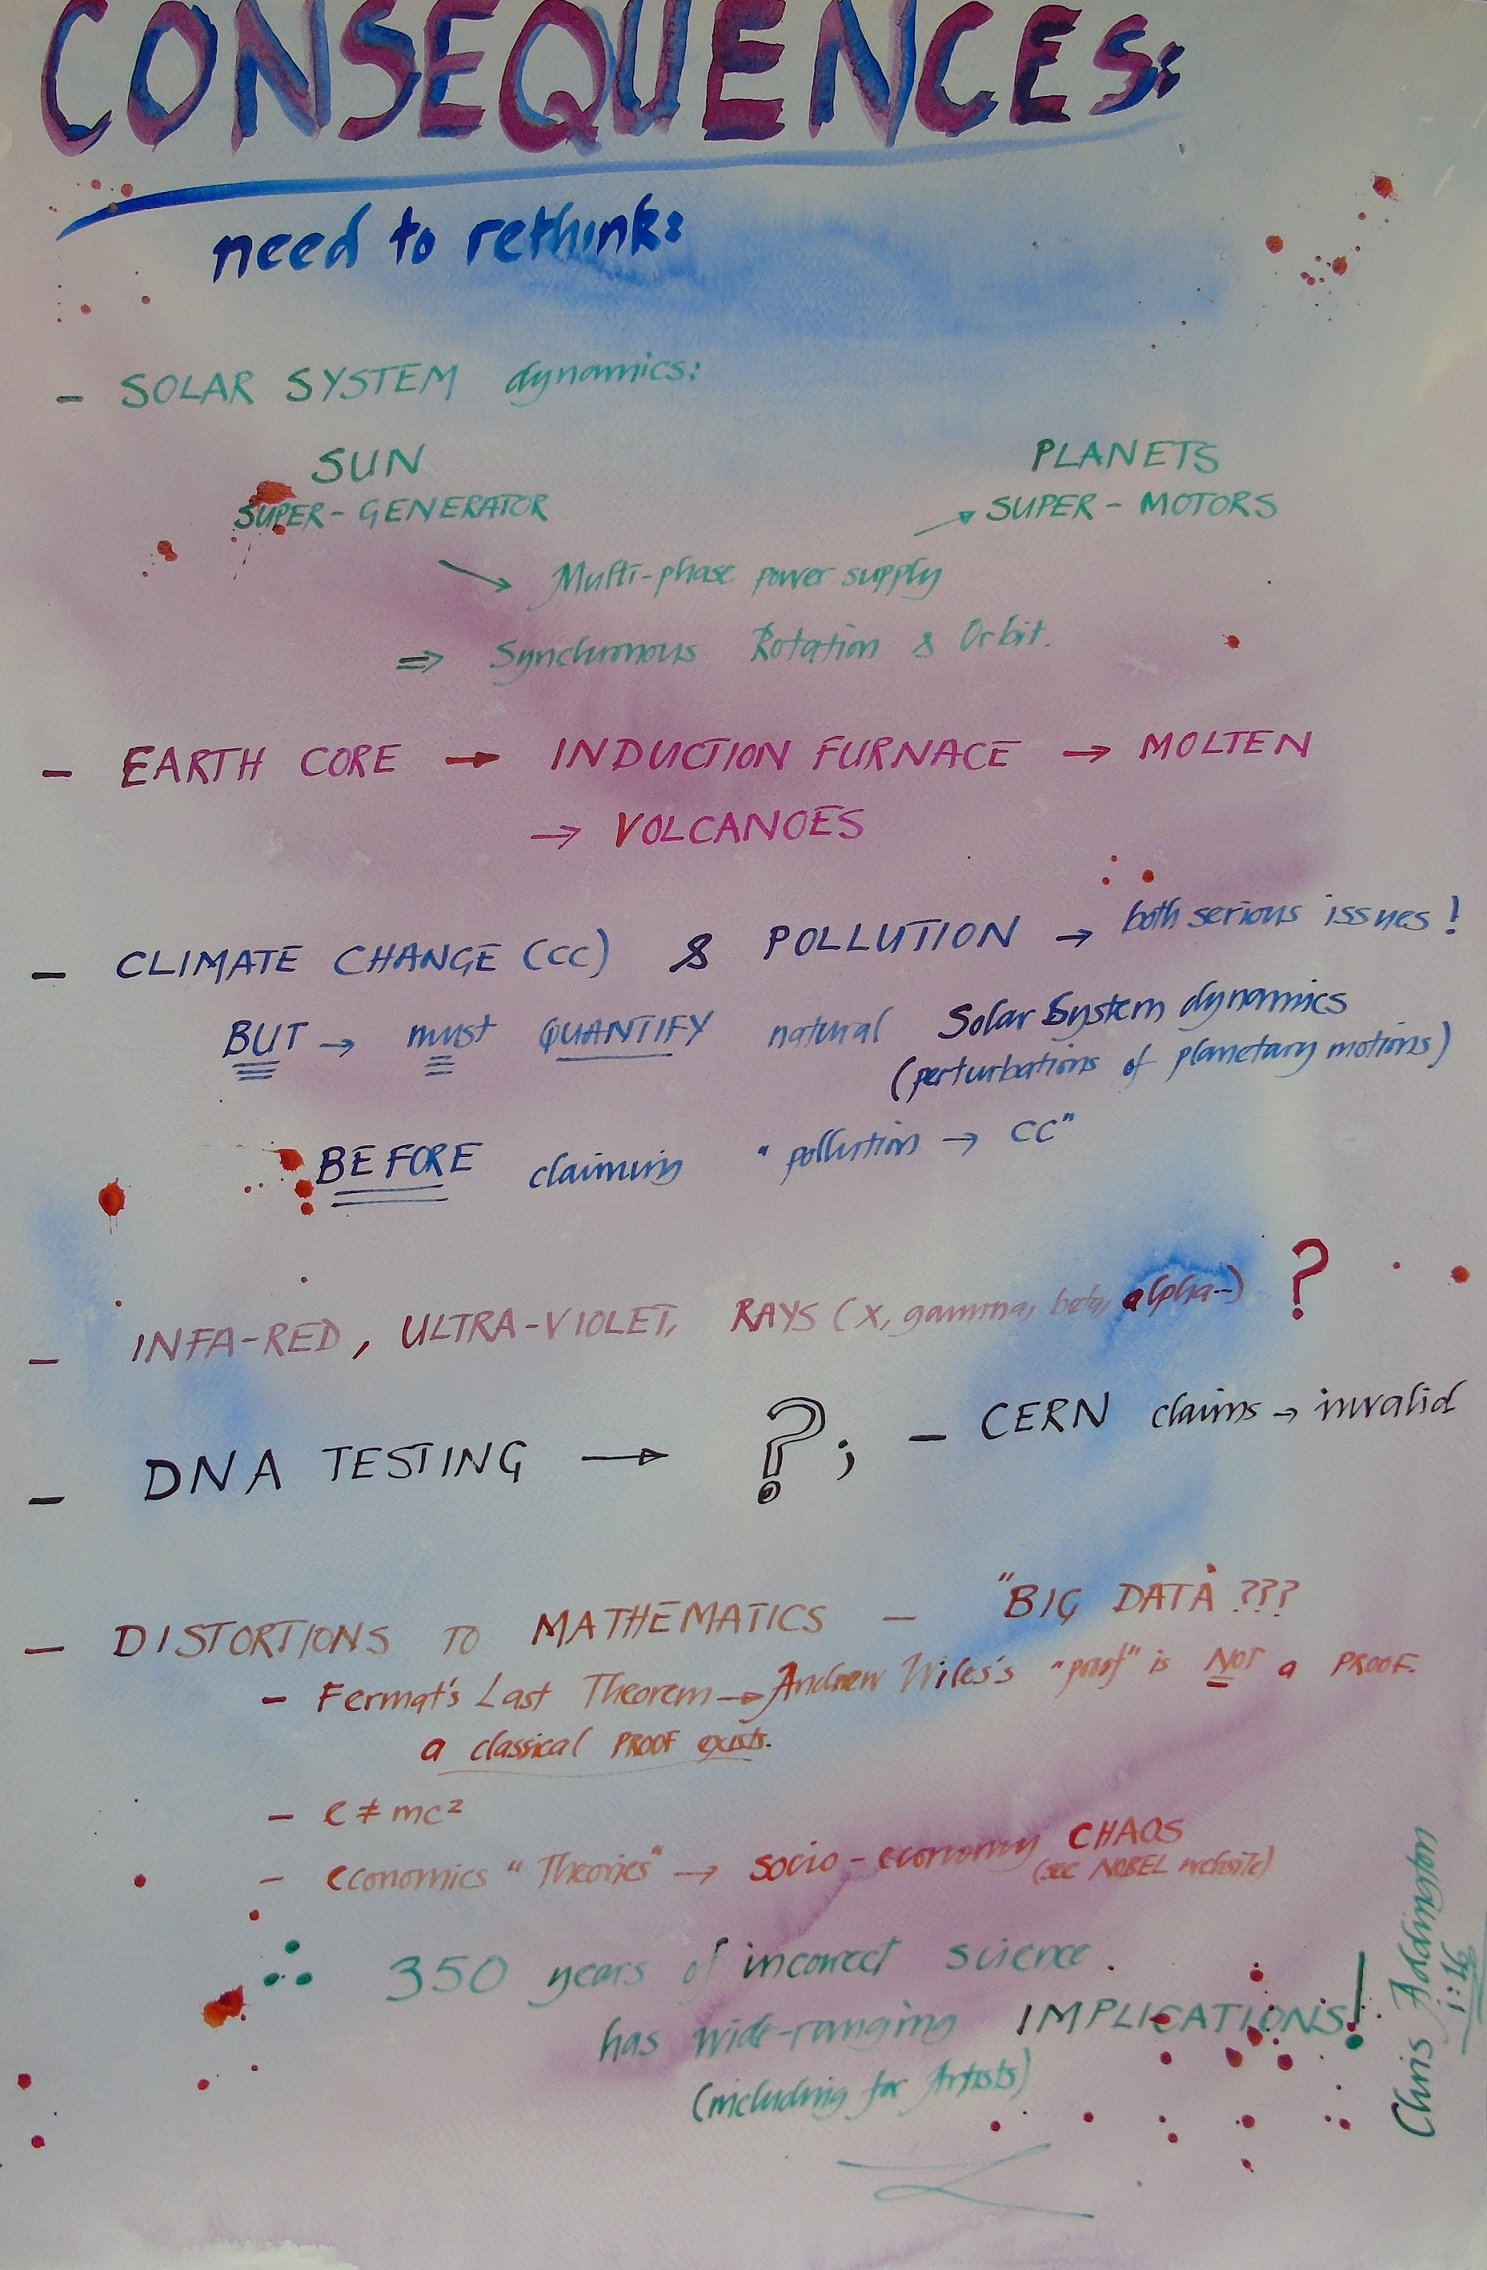 CONSEQUENCES:
need to rethink:
- SOLAR SYSTEM dynamics:
SUN PLANETS
SUPER-GENERATOR → SUPER-MOTORS
→ Multi-phase power supply
⇒ Synchronous Rotation & Orbit.
- EARTH CORE → INDUCTION FURNACE → MOLTEN
→ VOLCANOES
- CLIMATE CHANGE (CC) & POLLUTION → both serious issues!
BUT → must QUANTIFY natural Solar System dynamics
(perturbations of planetary motions)
BEFORE claiming "pollution → CC"
- INFA-RED, ULTRA-VIOLET, RAYS (X, gamma, beta, alpha-) ?
- DNA TESTING → ?; - CERN claims → invalid
- DISTORTIONS TO MATHEMATICS - "BIG DATA ???
- Fermat's Last Theorem → Andrew Wiles's "proof" is NOT a PROOF.
a classical PROOF exists.
- e ≠ mc²
- economics "Theories" → socio-economy CHAOS
(see NOBEL website)
∴ 350 years of incorrect science.
has wide-ranging IMPLICATIONS!
(including for Artists)
Chris Addington
1:16